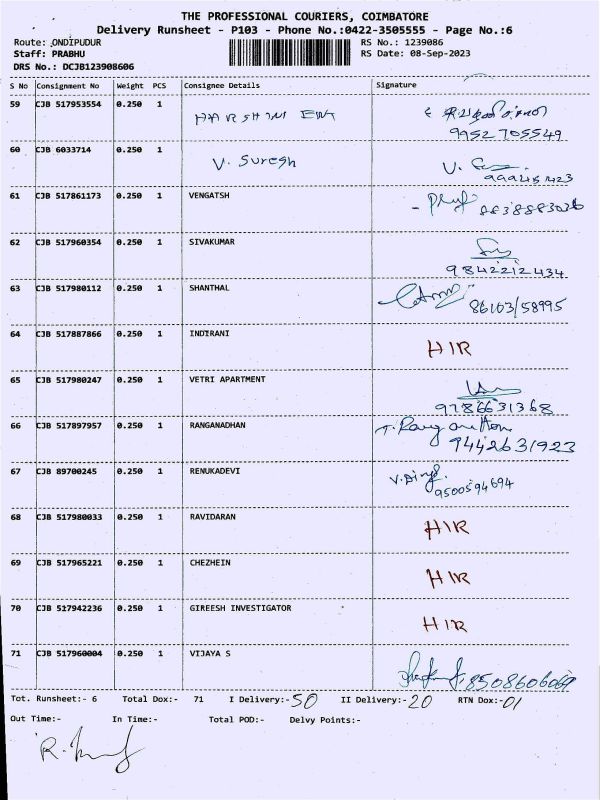 THE PROFESSIONAL COURIERS, COIMBATORE
Delivery Runsheet - P103 - Phone No.:0422-3505555 - Page No.:6
Route: ,ONDIPUDUR RS No.: 1239086
Staff: PRABHU RS Date: 08-Sep-2023
DRS No.: DCJB123908606
S No Consignment No Weight PCS Consignee Details Signature
59 CJB 517953554 0.250 1 HARSHINI ENT
9952705549
60 CJB 6033714 0.250 1 V. Suresh V.
61 CJB 517861173 0.250 1 VENGATSH
62 CJB 517960354 0.250 1 SIVAKUMAR
9842212434
63 CJB 517980112 0.250 1 SHANTHAL
86103/58995
64 CJB 517887866 0.250 1 INDIRANI HIR
65 CJB 517980247 0.250 1 VETRI APARTMENT
9786631368
66 CJB 517897957 0.250 1 RANGANADHAN
9442631923
67 CJB 89700245 0.250 1 RENUKADEVI
9500594694
68 CJB 517980033 0.250 1 RAVIDARAN HIR
69 CJB 517965221 0.250 1 CHEZHEIN HIR
70 CJB 527942236 0.250 1 GIREESH INVESTIGATOR HIR
71 CJB 517960004 0.250 1 VIJAYA S
8508606069
Tot. Runsheet:- 6 Total Dox:- 71 I Delivery:- 50 II Delivery:- 20 RTN Dox:- 01
Out Time:- In Time:- Total POD:- Delvy Points:-